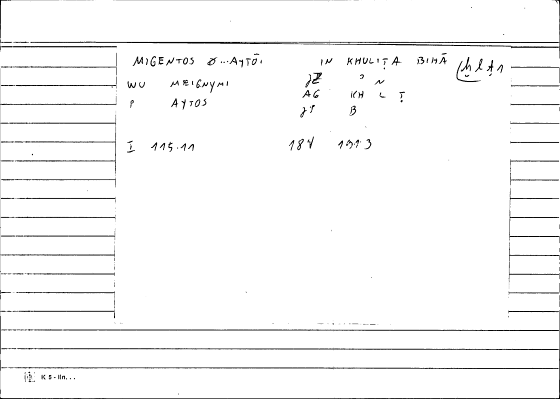 MIGENTOS Ø...AYTŌI IN KHULIṬA BIHĀ
WU MEIGNYMI ɔ N
P AYTOS AG KH L Ṭ
B
I 115.11 184 1913
K S-IIn...